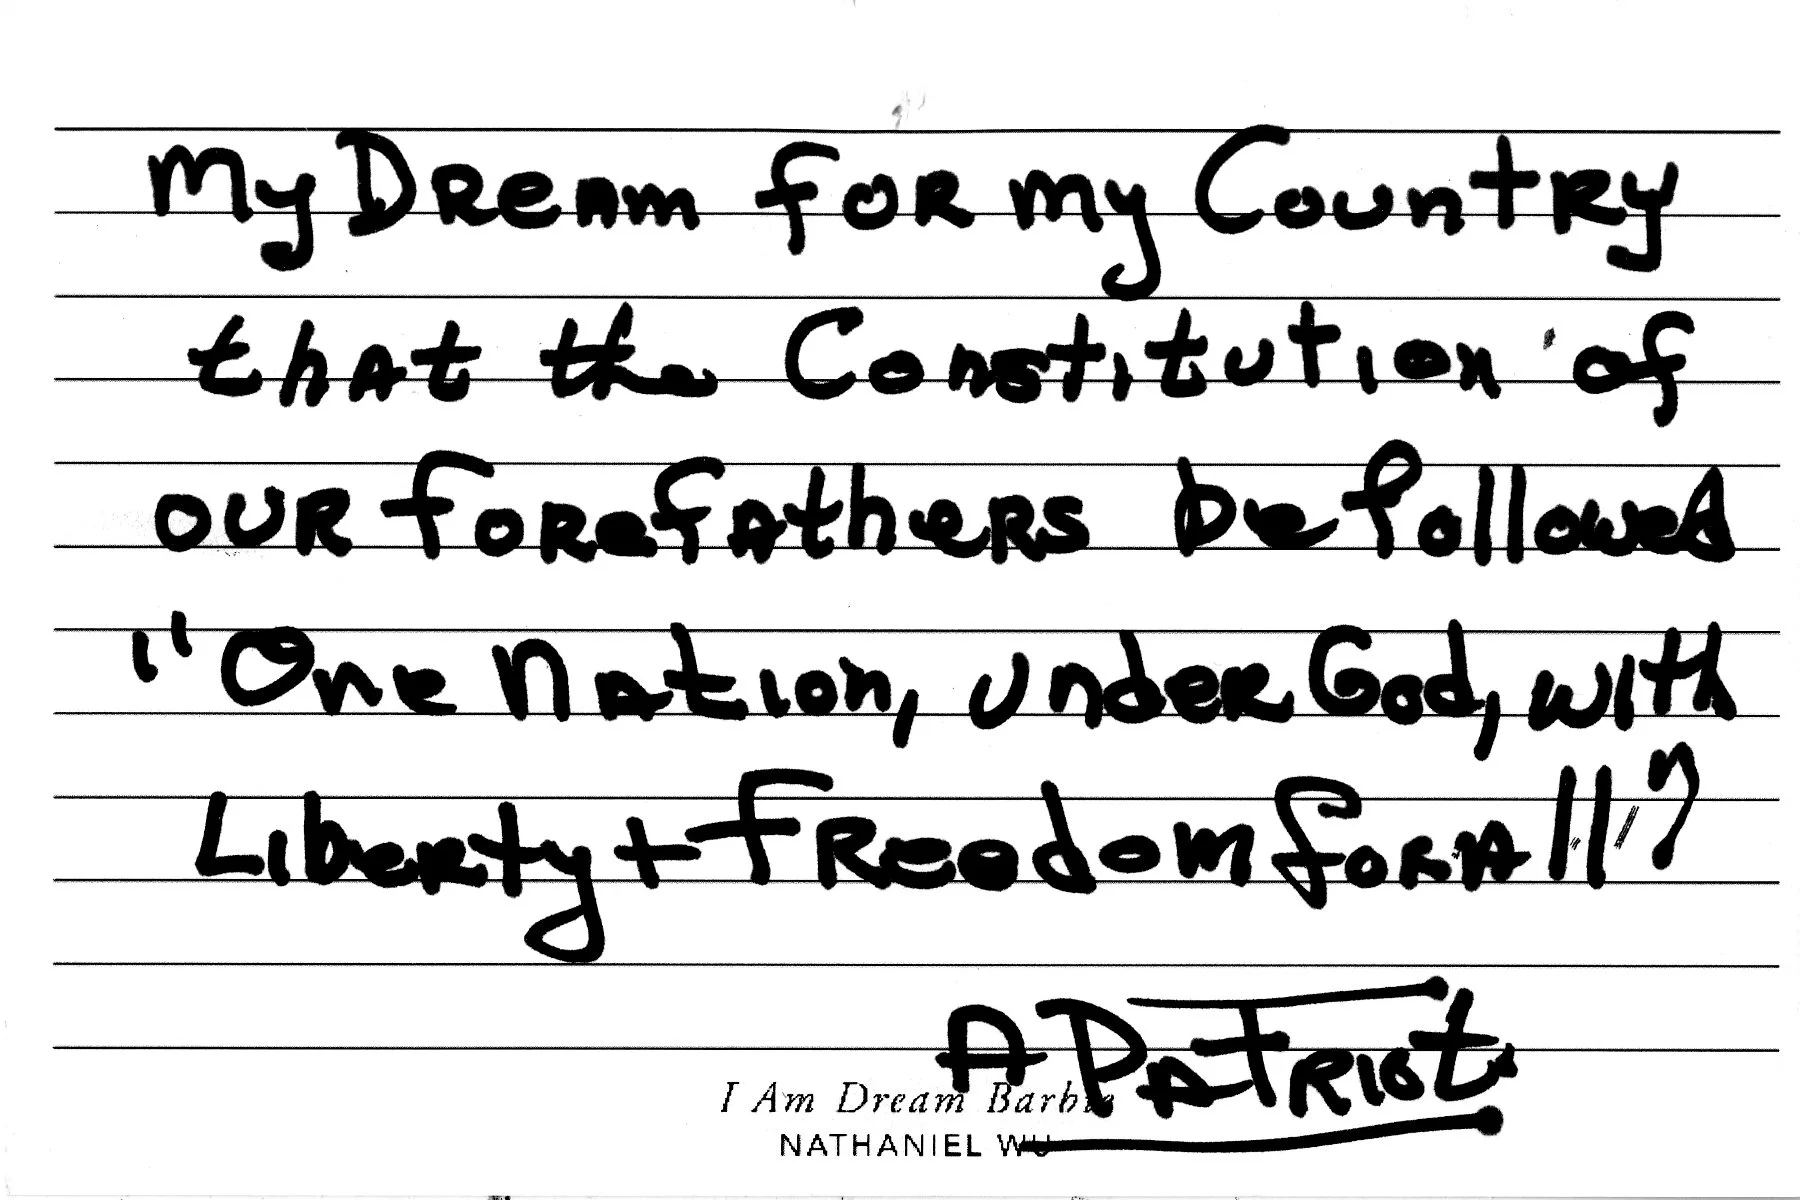 My Dream for my Country
that the Constitution of
our forefathers be followed
"One Nation, under God, with
Liberty + Freedom for All"
A Patriot
I Am Dream Barbie
NATHANIEL WU